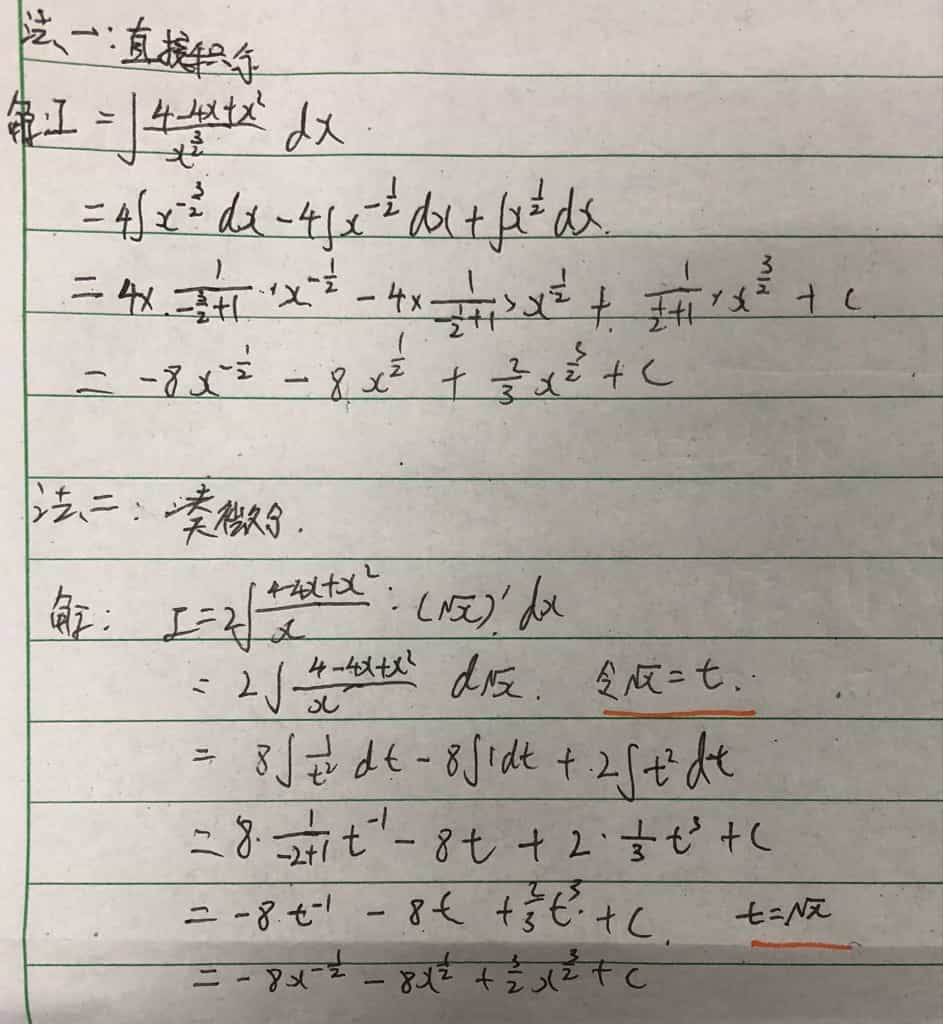 法一:直接积分
解:I = ∫ (4-4x+x²)/x^(3/2) dx.
= 4∫x^(-3/2) dx - 4∫x^(-1/2) dx + ∫x^(1/2) dx.
= 4× 1/(-3/2+1) · x^(-1/2) - 4× 1/(-1/2+1) × x^(1/2) + 1/(1/2+1) × x^(3/2) + C
= -8x^(-1/2) - 8x^(1/2) + 2/3 x^(3/2) + C
法二:凑微分.
解: I = 2∫ (4-4x+x²)/x · (√x)' dx
= 2∫ (4-4x+x²)/x d√x. 令√x = t.
= 8∫ 1/t² dt - 8∫1dt + 2∫t² dt
= 8· 1/(-2+1) t^(-1) - 8t + 2· 1/3 t³ + C
= -8t^(-1) - 8t + 2/3 t³ + C. t=√x
= -8x^(-1/2) - 8x^(1/2) + 3/2 x^(3/2) + C